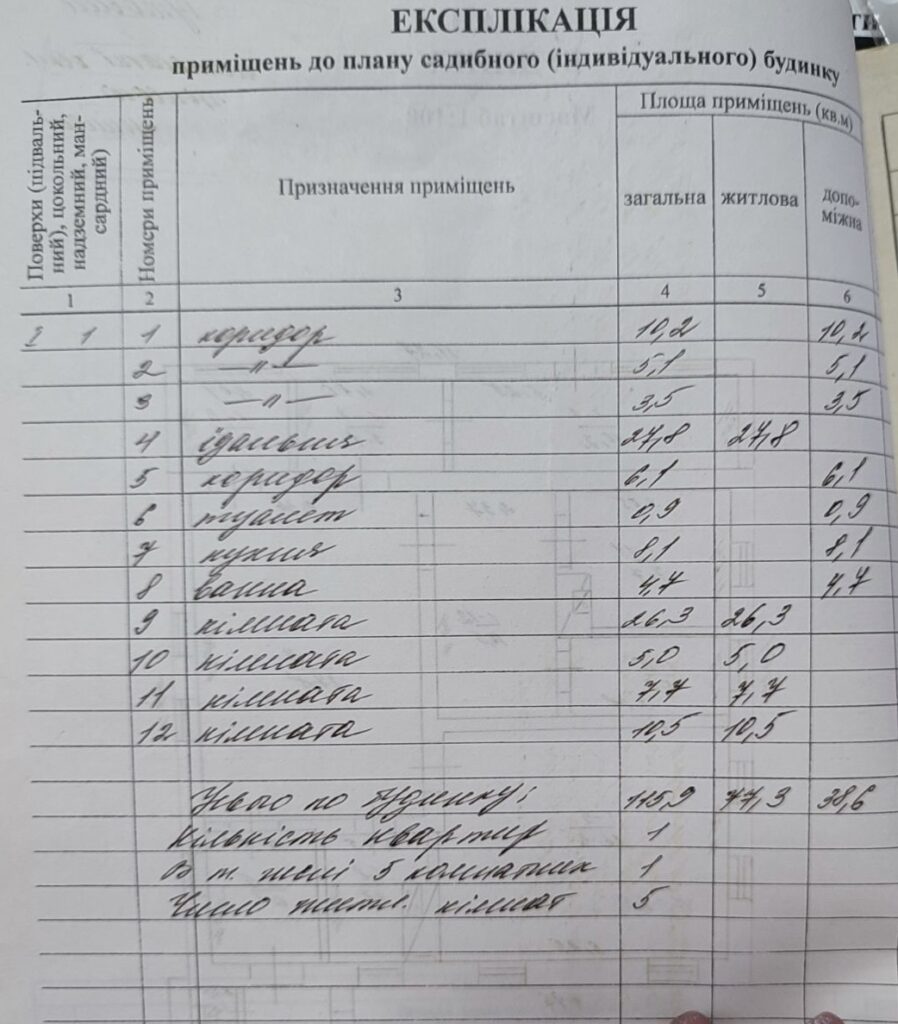 ЕКСПЛІКАЦІЯ
приміщень до плану садибного (індивідуального) будинку
Поверхи (підваль-
ний), цокольний,
надземний, ман-
сардний)
Номери приміщень
Призначення приміщень
Площа приміщень (кв.м)
загальна житлова допо-
міжна
1 2 3 4 5 6
I 1 1 коридор 10,2 10,2
2 —"— 5,1 5,1
3 —"— 3,5 3,5
4 їдальня 27,8 27,8
5 коридор 6,1 6,1
6 туалет 0,9 0,9
7 кухня 8,1 8,1
8 ванна 4,7 4,7
9 кімната 26,3 26,3
10 кімната 5,0 5,0
11 кімната 7,7 7,7
12 кімната 10,5 10,5
Усього по будинку: 115,9 77,3 38,6
Кількість квартир 1
В т. числі 5 комнатних 1
Число житл. кімнат 5